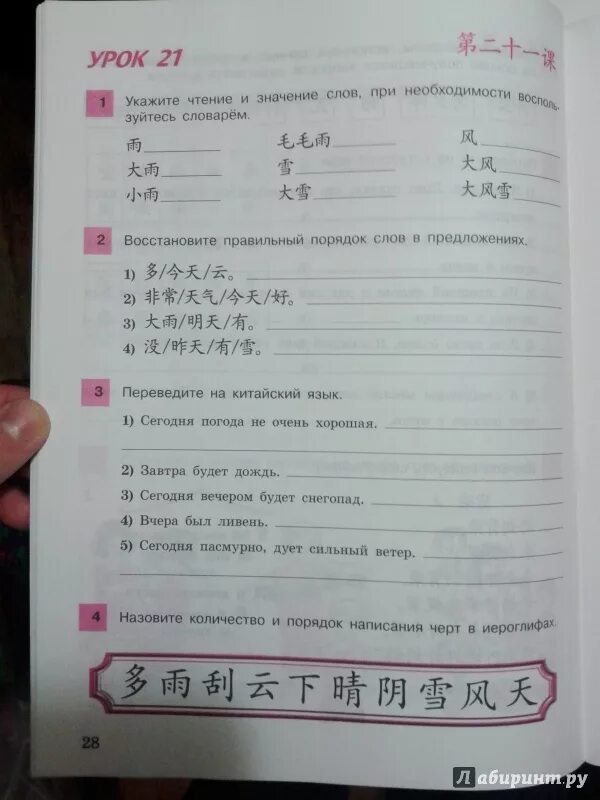 УРОК 21 第二十一课
1 Укажите чтение и значение слов, при необходимости восполь-
зуйтесь словарём.
雨 毛毛雨 风
大雨 雪 大风
小雨 大雪 大风雪
2 Восстановите правильный порядок слов в предложениях.
1) 多/今天/云。
2) 非常/天气/今天/好。
3) 大雨/明天/有。
4) 没/昨天/有/雪。
3 Переведите на китайский язык.
1) Сегодня погода не очень хорошая.
2) Завтра будет дождь.
3) Сегодня вечером будет снегопад.
4) Вчера был ливень.
5) Сегодня пасмурно, дует сильный ветер.
4 Назовите количество и порядок написания черт в иероглифах.
多雨刮云下晴阴雪风天
28
Лабиринт.ру